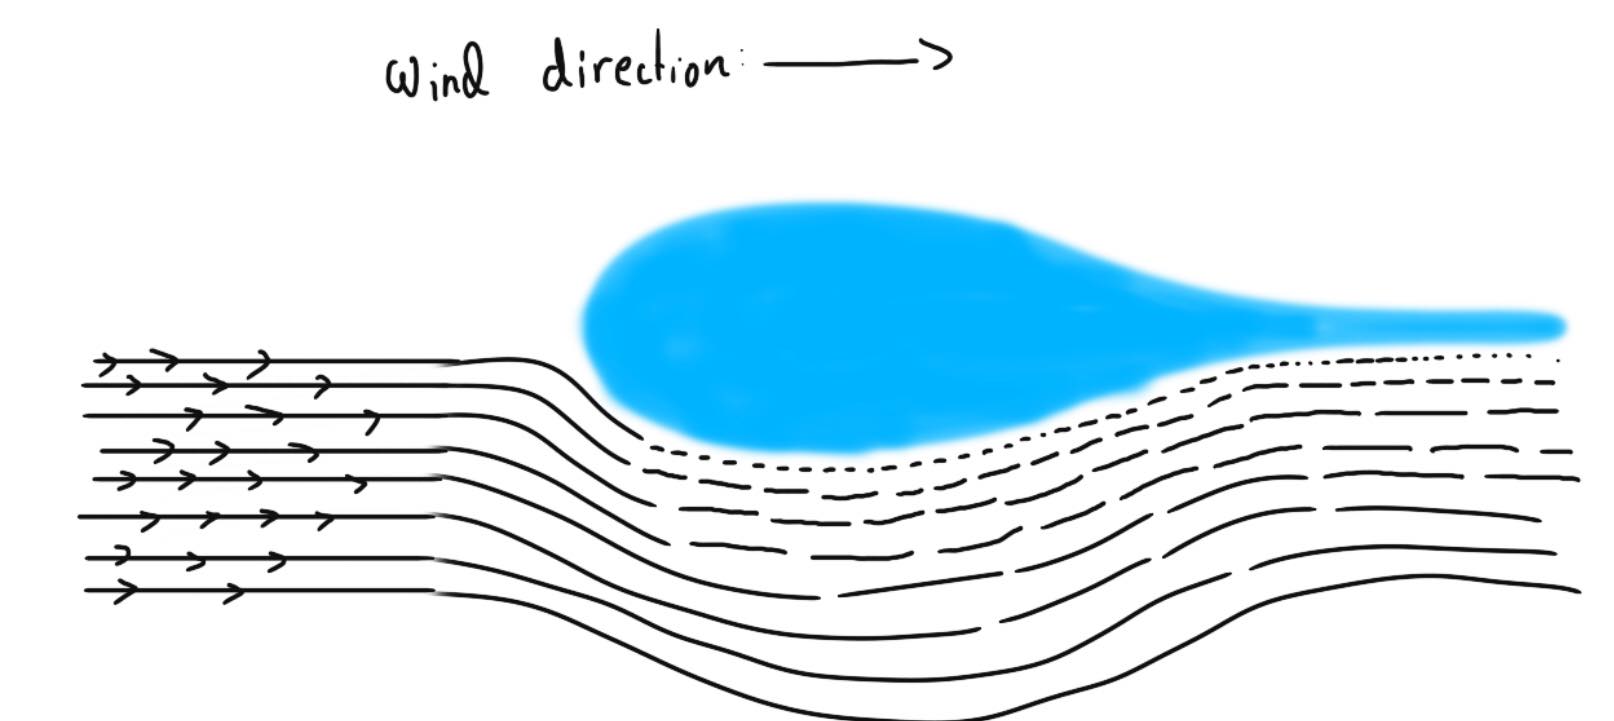 wind direction: